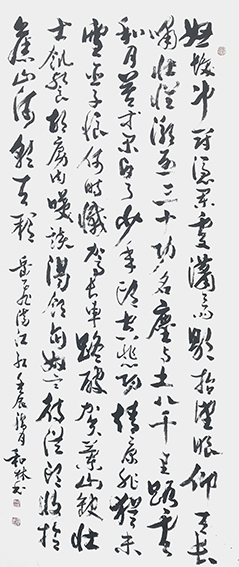 怒髮冲冠憑闌處瀟瀟雨歇抬望眼仰天長
嘯壯懷激烈三十功名塵與土八千里路雲
和月莫等閒白了少年頭空悲切靖康恥猶未
雪臣子恨何時滅駕長車踏破賀蘭山缺壯
志飢餐胡虜肉笑談渴飲匈奴血待從頭收拾
舊山河朝天闕 岳飛滿江紅 壬辰 月 和林书